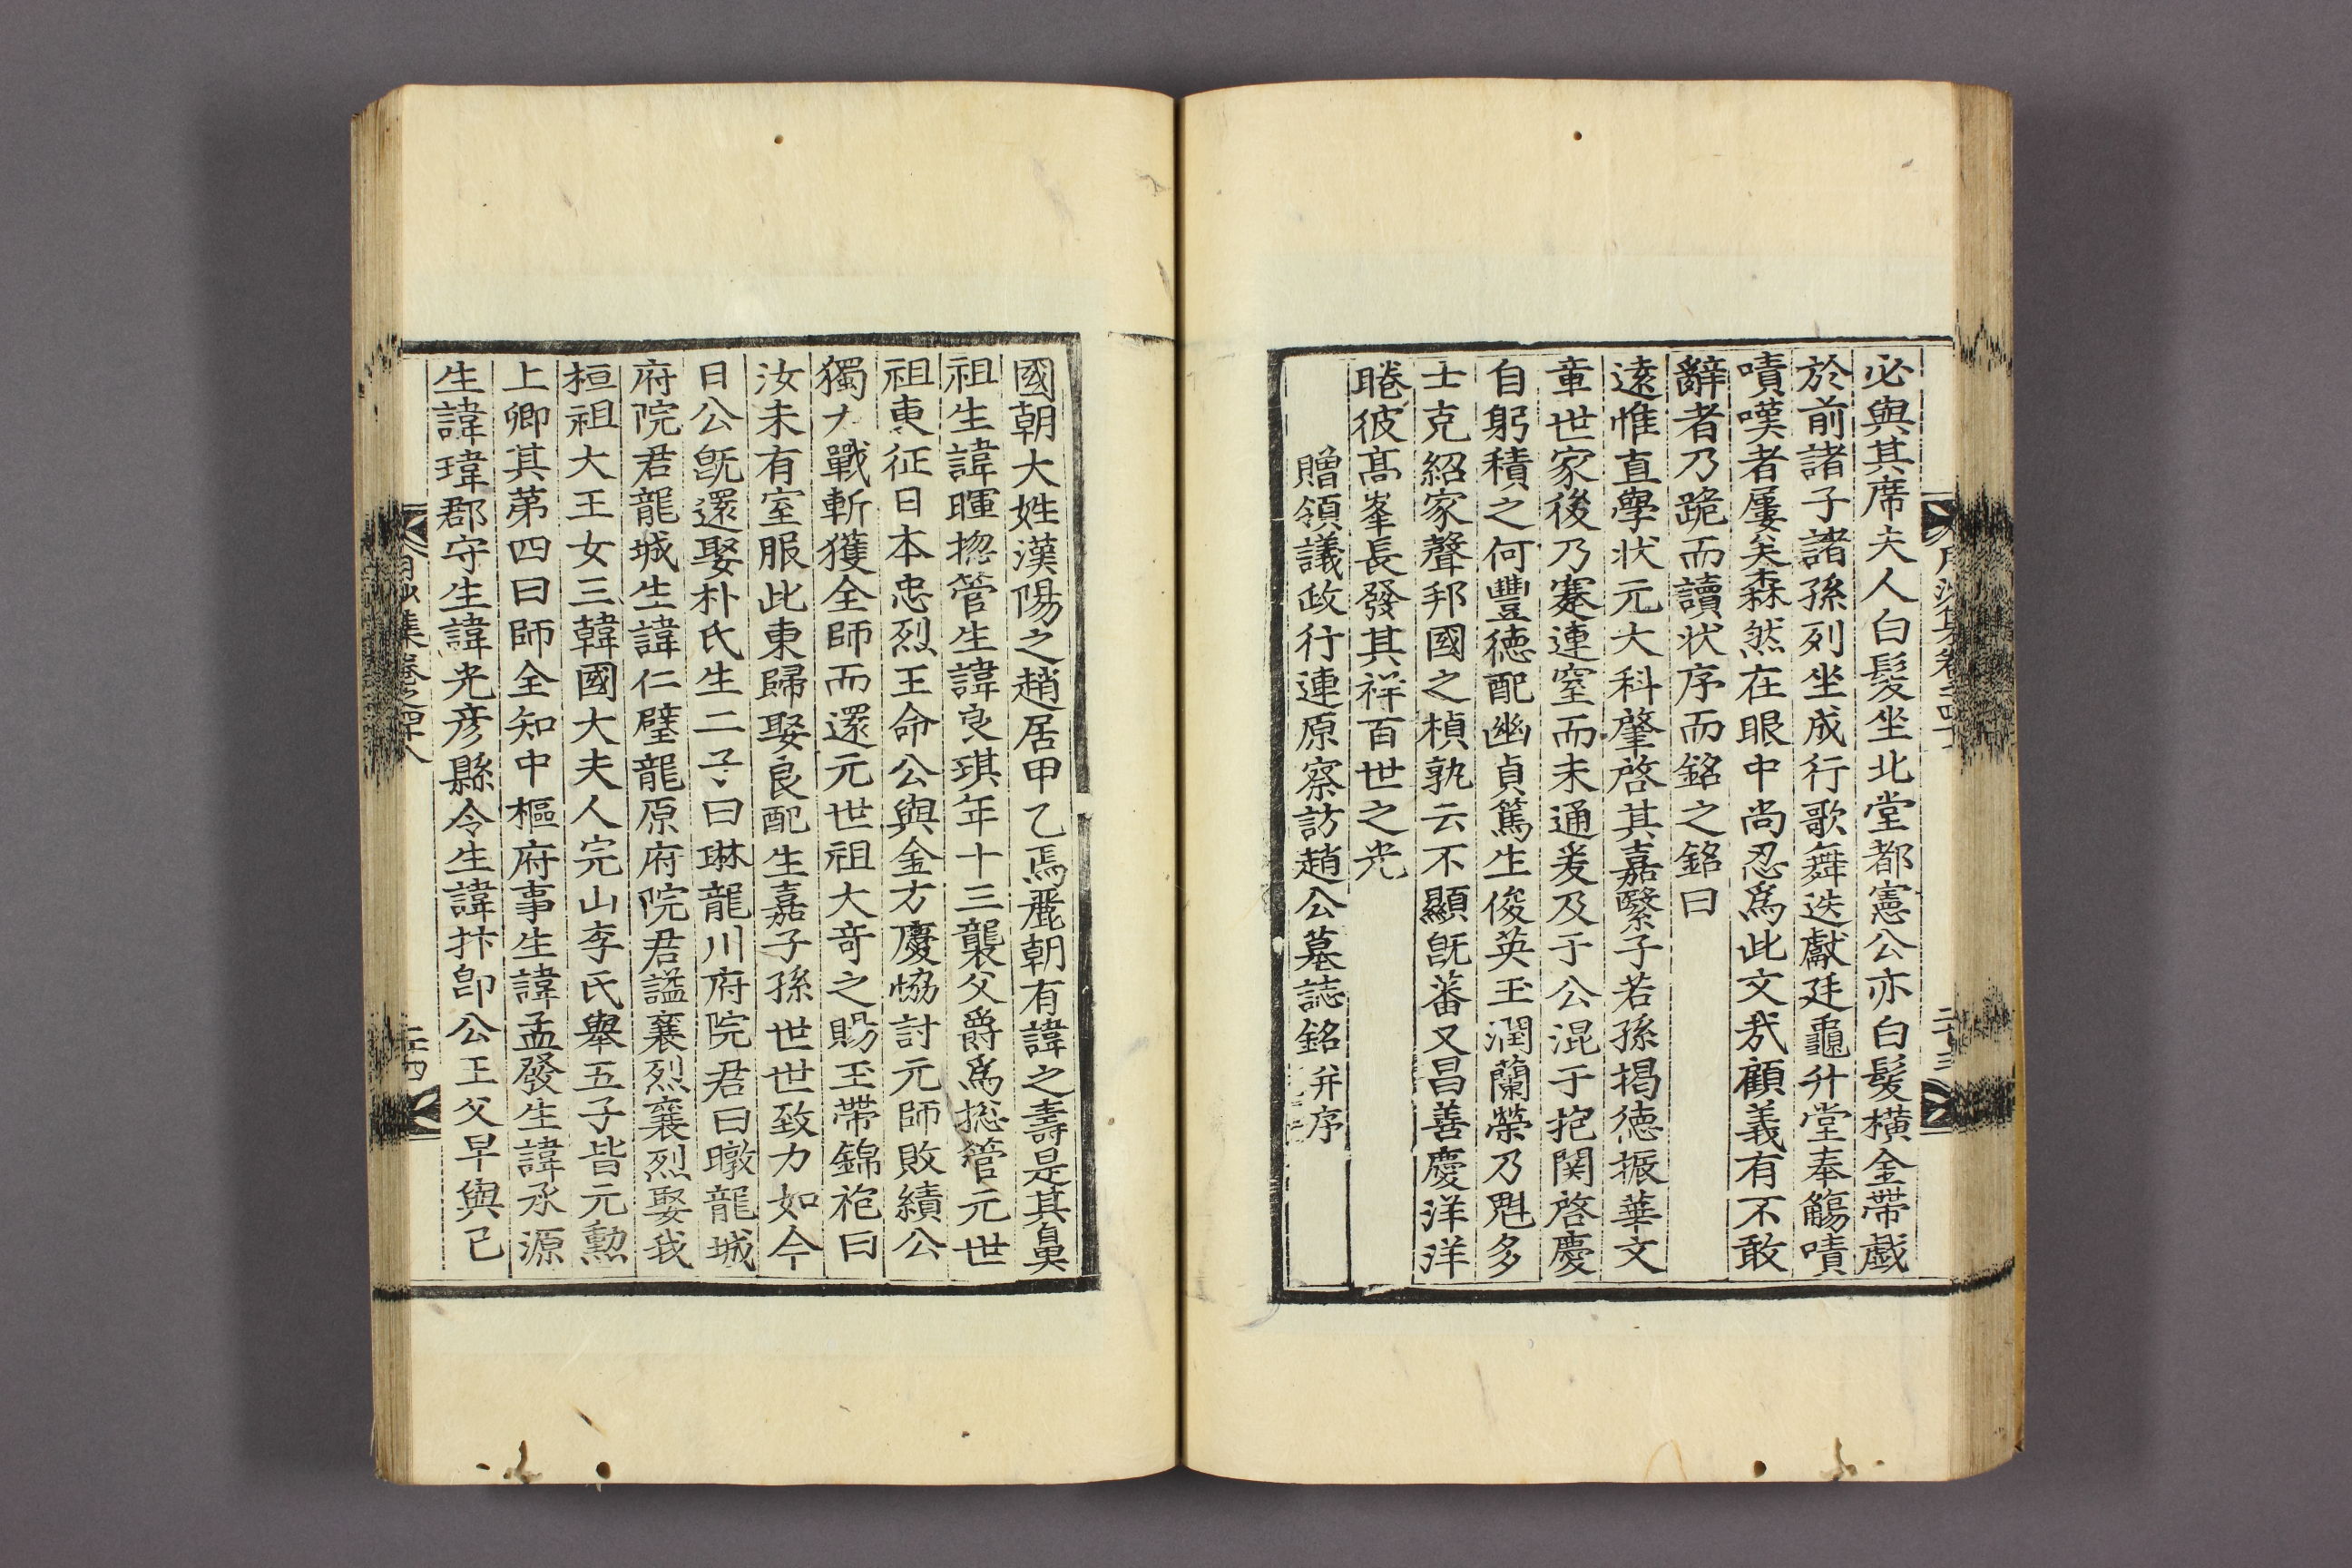 必與其席夫人白髮坐北堂都憲公亦白髮橫金帶戱
於前諸子諸孫列坐成行歌舞迭獻廷龜升堂奉觴嘖
嘖嘆者屢矣森然在眼中尚忍爲此文㢤顧義有不敢
辭者乃跪而讀狀序而銘之銘曰
逺惟直學狀元大科肇啓其嘉繄子若孫揭德振華文
章世家後乃蹇連窒而未通爰及于公混于抱関啓慶
自躬積之何豐德配幽貞篤生俊英玉潤蘭榮乃魁多
士克紹家聲邦國之楨孰云不顯旣蕃又昌善慶洋洋
睠彼高峯長發其祥百世之光
贈領議政行連原察訪趙公墓誌銘 幷序
國朝大姓漢陽之趙居甲乙焉麗朝有諱之壽是其鼻
祖生諱暉揔管生諱良琪年十三襲父爵爲揔管元世
祖東征日本忠烈王命公與金方慶恊討元師敗績公
獨力戰斬獲全師而還元世祖大奇之賜玉帶錦袍曰
汝未有室服此東歸娶良配生嘉子孫世世致力如今
日公旣還娶朴氏生二子曰琳龍川府院君曰暾龍城
府院君龍城生諱仁璧龍原府院君謚襄烈襄烈娶我
桓祖大王女三韓國大夫人完山李氏擧五子皆元勳
上卿其第四曰師全知中樞府事生諱孟發生諱承源
生諱瑋郡守生諱光彦縣令生諱抃卽公王父早與己
月沙集卷之四十八
二十四
二十三